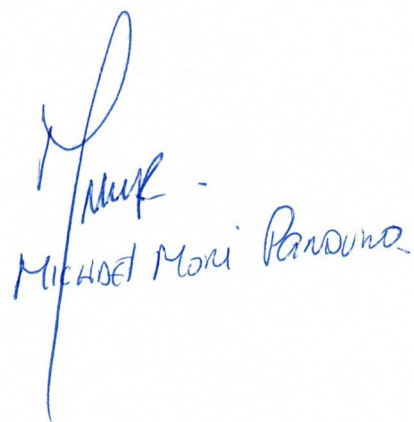 Michael Mori Panduro